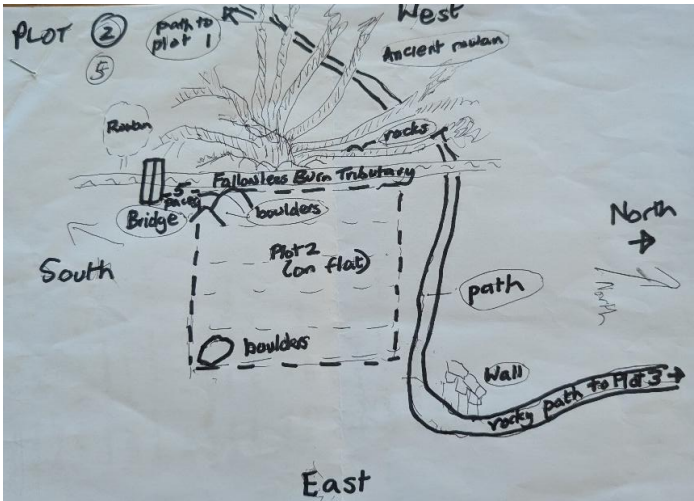 PLOT 2
5
path to
plot 1
West
Ancient rowan
Rowan
rocks
Fallowlees Burn Tributary
5
paces
Bridge
boulders
North
South
Plot 2
(on flat)
path
North
boulders
Wall
rocky path to Plot 3
East